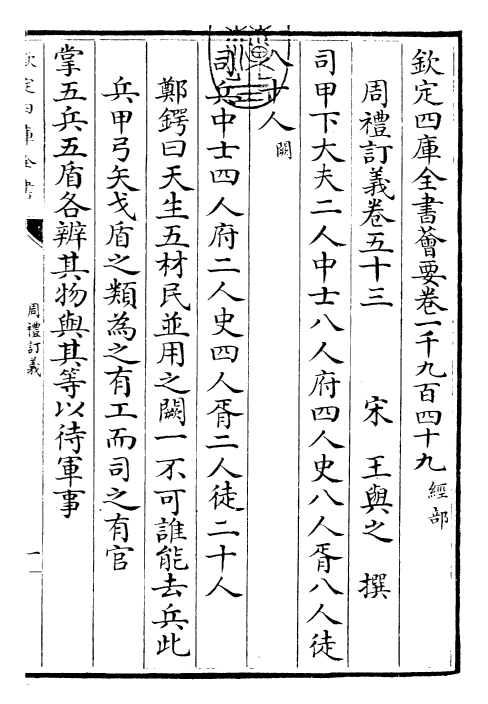 欽定四庫全書薈要卷一千九百四十九 經部
周禮訂義卷五十三 宋 王與之 撰
司甲下大夫二人中士八人府四人史八人胥八人徒
八十人 闕
司兵中士四人府二人史四人胥二人徒二十人
鄭鍔曰天生五材民並用之闕一不可誰能去兵此
兵甲弓矢戈盾之類為之有工而司之有官
掌五兵五盾各辨其物與其等以待軍事
欽定四庫全書
周禮訂義
一